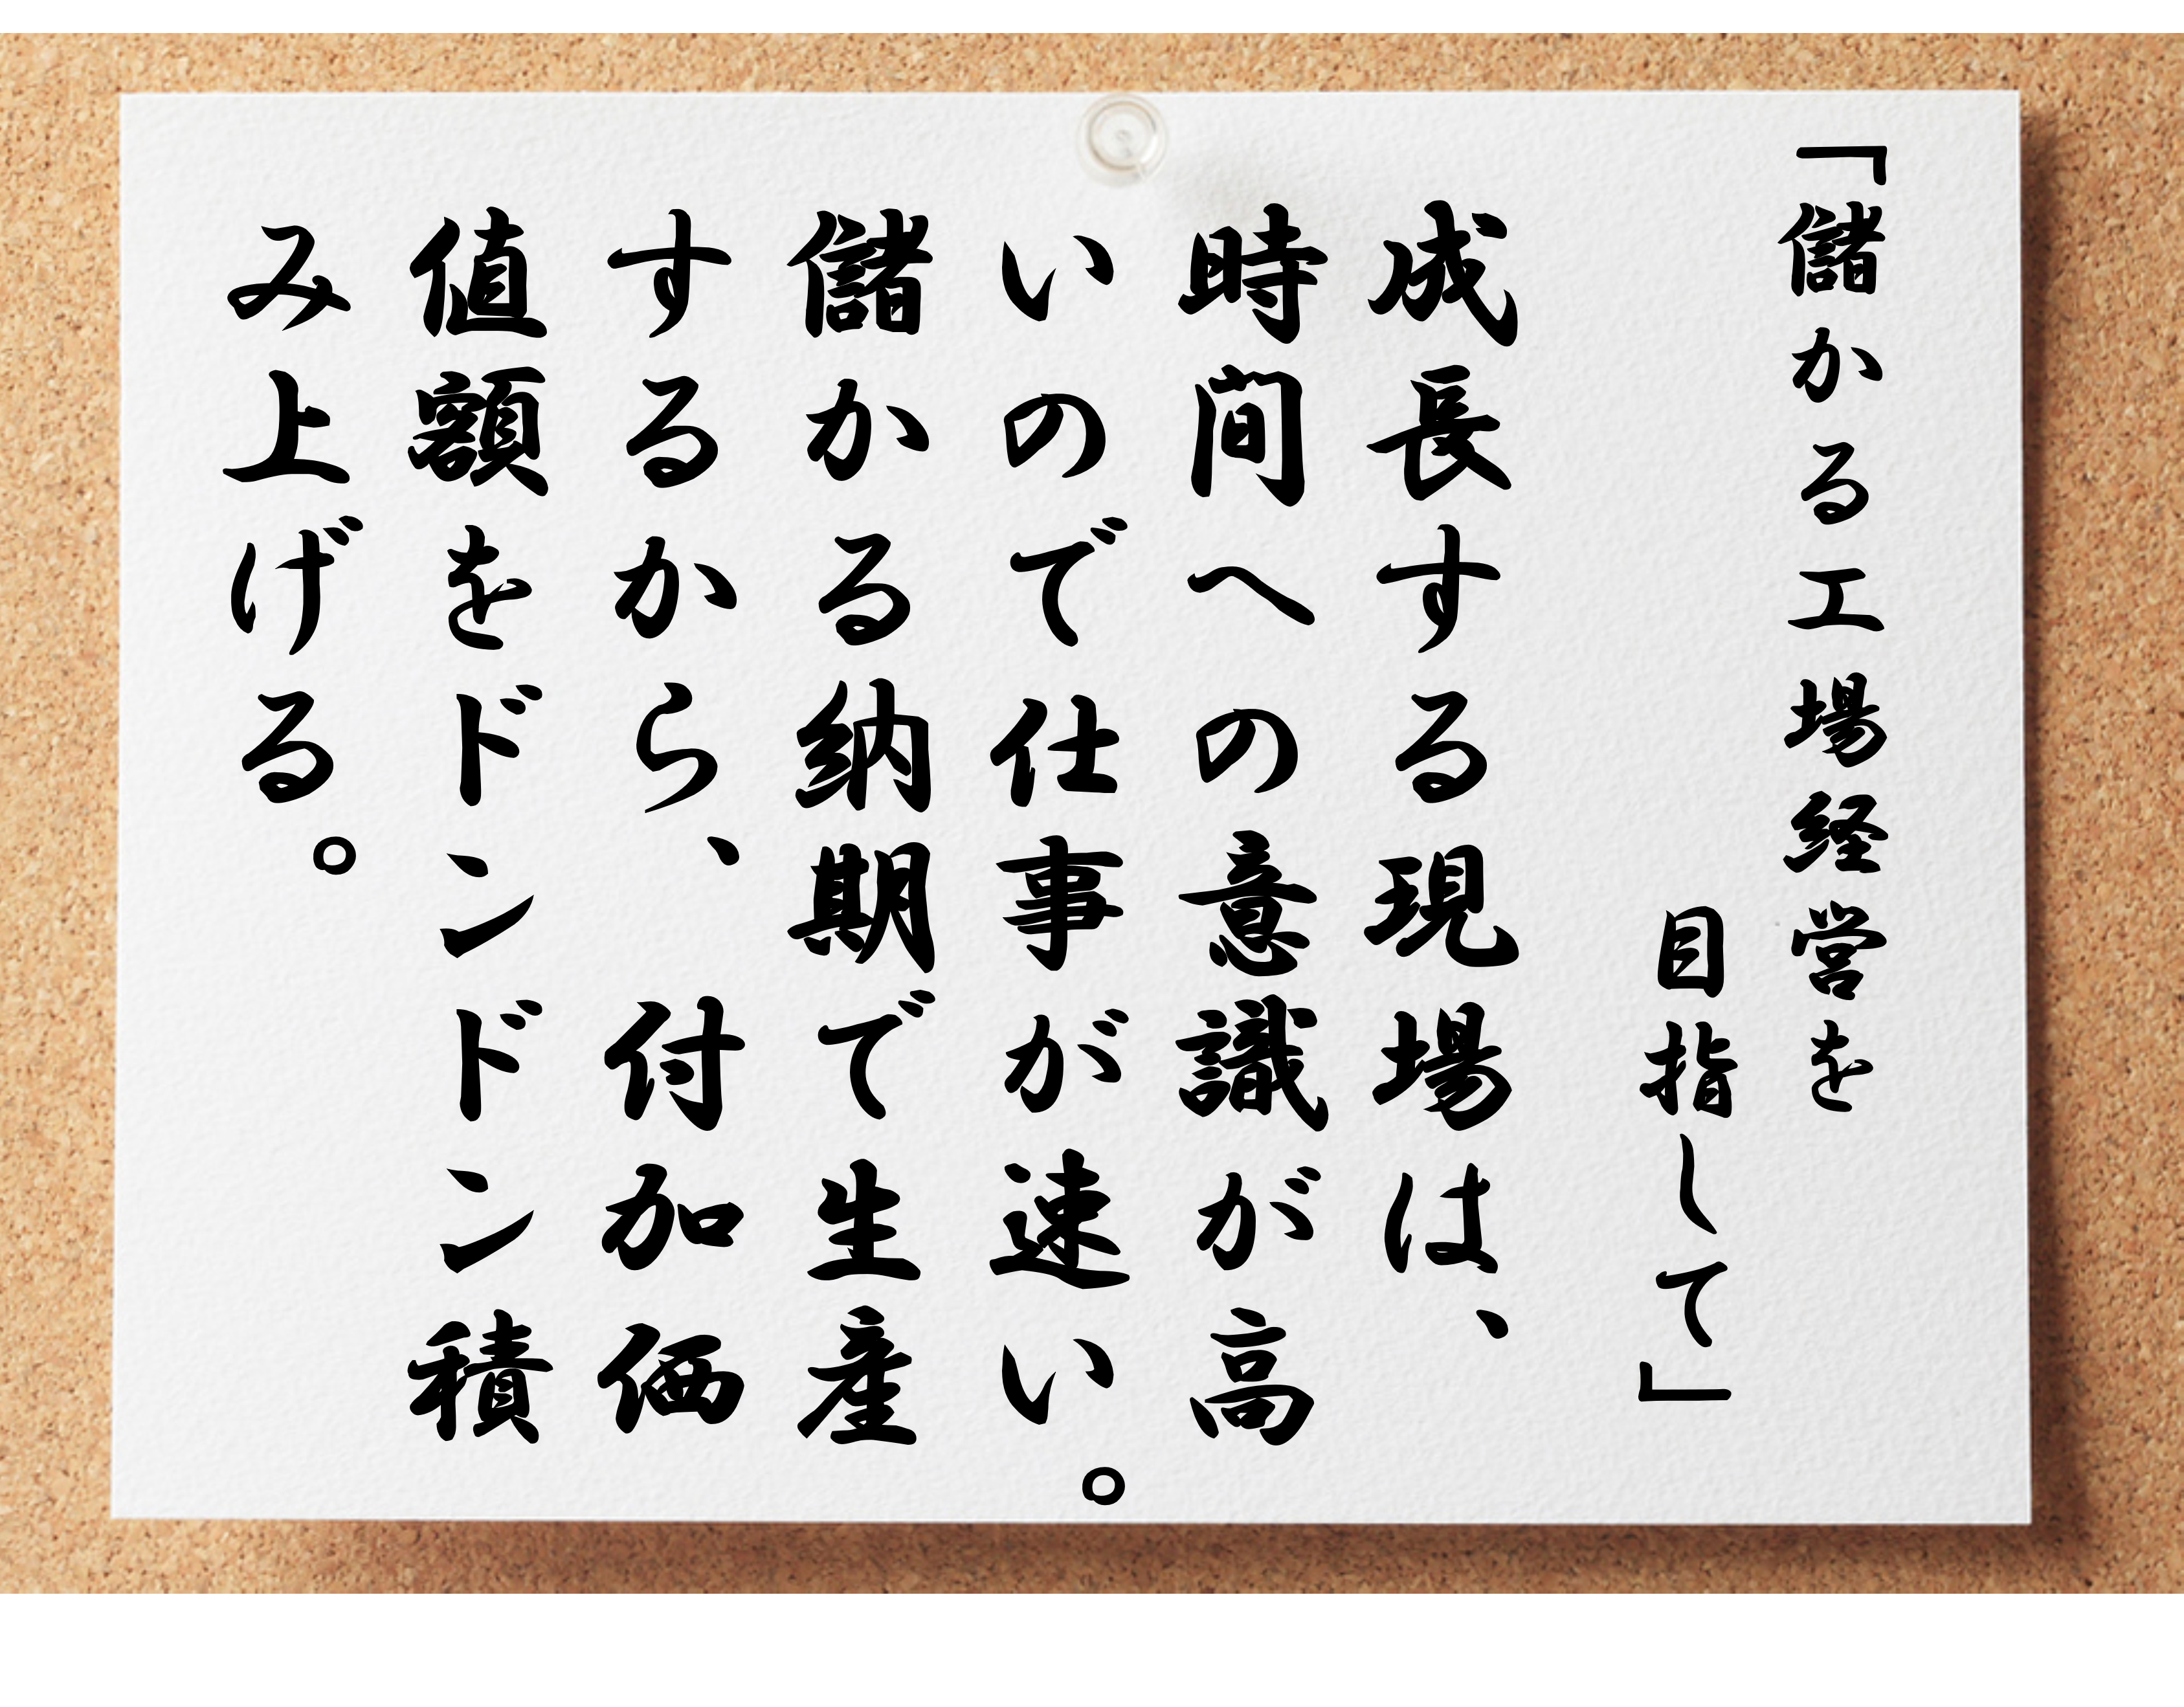 「儲かる工場経営を
目指して」
成長する現場は、
時間への意識が高
いので仕事が速い。
儲かる納期で生産
するから、付加価
値額をドンドン積
み上げる。